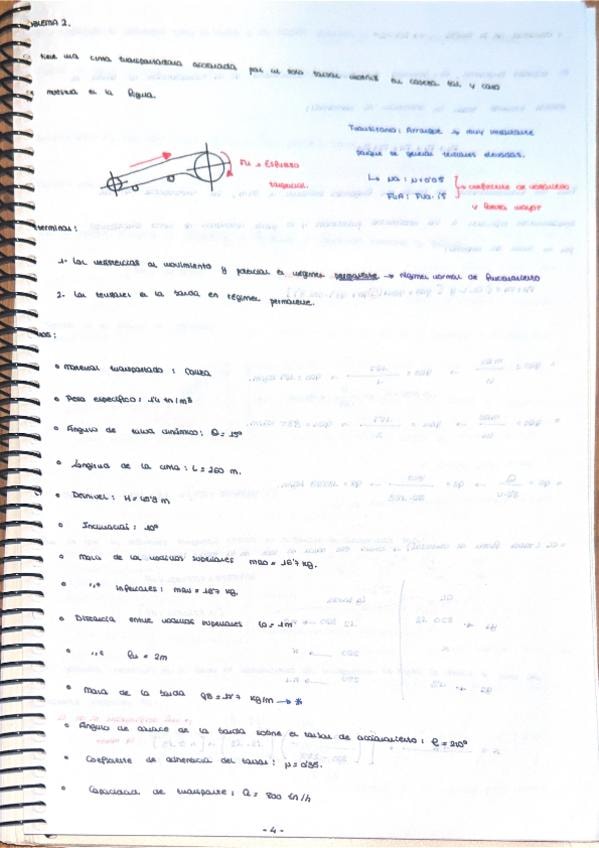 PROBLEMA 2.
tiene una cinta transportadora accionada por un solo tambor motriz en cabeza tal y como
muestra en la figura.
Transitorio: Arranque → muy importante
porque se generan tensiones elevadas.
Fu → Esfuerzo
tangencial.
↳ μa: μ+0'05
FuA: Fu·1'5
→ coeficiente de rozamiento
y fuerza mayor
terminar:
1- Las resistencias al movimiento y potencias en régimen permanente → régimen normal de funcionamiento
2- Las tensiones en la banda en régimen permanente.
Datos:
• Material transportado: Caliza
• Peso específico: 1'4 tn/m³
• Ángulo de talud dinámico: θ = 15º
• Longitud de la cinta: L = 260 m.
• Desnivel: H = 45'8 m
• Inclinación: 10º
• Masa de los rodillos superiores mRO = 18'7 kg.
• ,, inferiores: mRU = 18'7 kg.
• Distancia entre rodillos superiores lo = 1m
• ,, lu = 2m
• Masa de la banda → *
• Ángulo de abrace de la banda sobre el tambor de accionamiento: φ = 210º
• Coeficiente de adherencia del tambor: μ = 0'35.
• Capacidad de transporte: Q = 800 tn/h
- 4 -